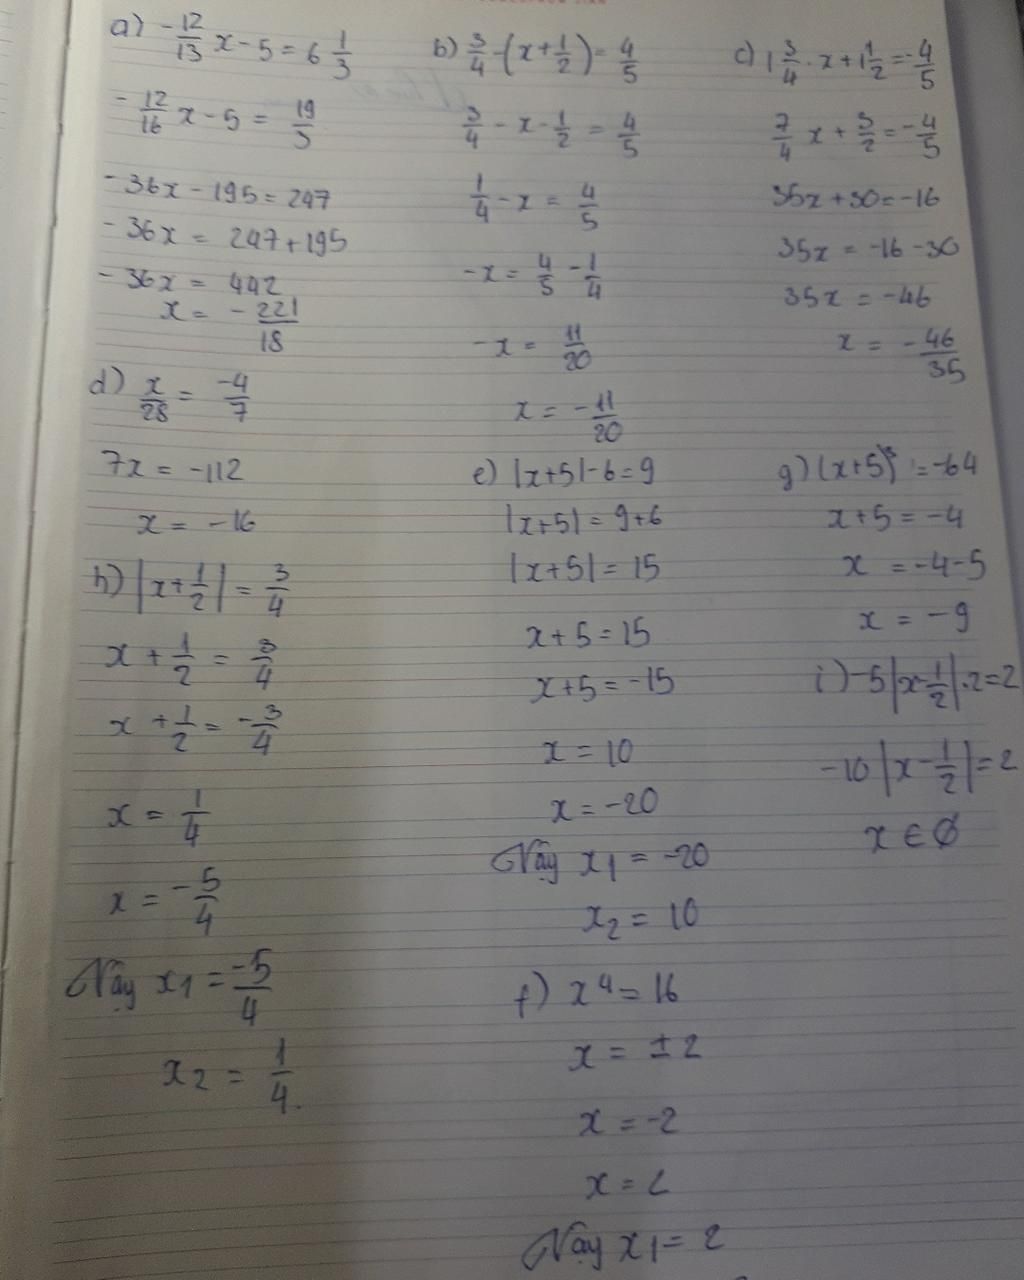 a) -12/13 x - 5 = 6 1/3
-12/16 x - 5 = 19/3
-36x - 195 = 247
-36x = 247 + 195
-36x = 442
x = -221/18
b) 3/4 - (x + 1/2) = 4/5
3/4 - x - 1/2 = 4/5
1/4 - x = 4/5
-x = 4/5 - 1/4
-x = 11/20
x = -11/20
c) 1 3/4 . x + 1 1/2 = -4/5
7/4 x + 3/2 = -4/5
35x + 30 = -16
35x = -16 - 30
35x = -46
x = -46/35
d) x/28 = -4/7
7x = -112
x = -16
e) |x+5| - 6 = 9
|x+5| = 9+6
|x+5| = 15
x + 5 = 15
x+5 = -15
x = 10
x = -20
Vậy x₁ = -20
x₂ = 10
g) (x+5)³ = -64
x+5 = -4
x = -4-5
x = -9
h) |x + 1/2| = 3/4
x + 1/2 = 3/4
x + 1/2 = -3/4
x = 1/4
x = -5/4
Vậy x₁ = -5/4
x₂ = 1/4.
i) -5|x - 1/2| . 2 = 2
-10|x - 1/2| = 2
x ∈ ∅
f) x⁴ = 16
x = ±2
x = -2
x = 2
Vậy x₁ = 2